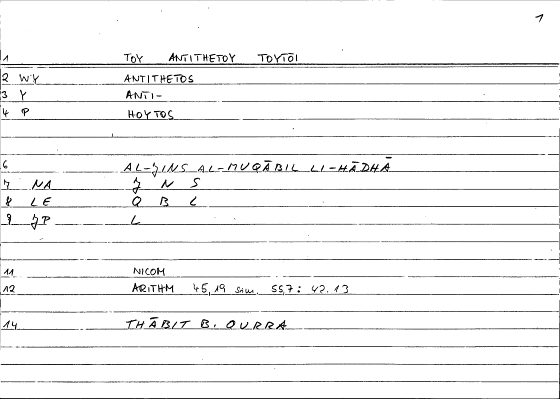 1
1 TOY ANTITHETOY TOYTŌI
2 WY ANTITHETOS
3 Y ANTI-
4 P HOYTOS
6 AL-ǦINS AL-MUQĀBIL LI-HĀDHĀ
7 NA Ǧ N S
8 LE Q B L
9 ǦP L
11 NICOM
12 ARITHM 45,19 sim. 55,7: 42.13
14 THĀBIT B. QURRA